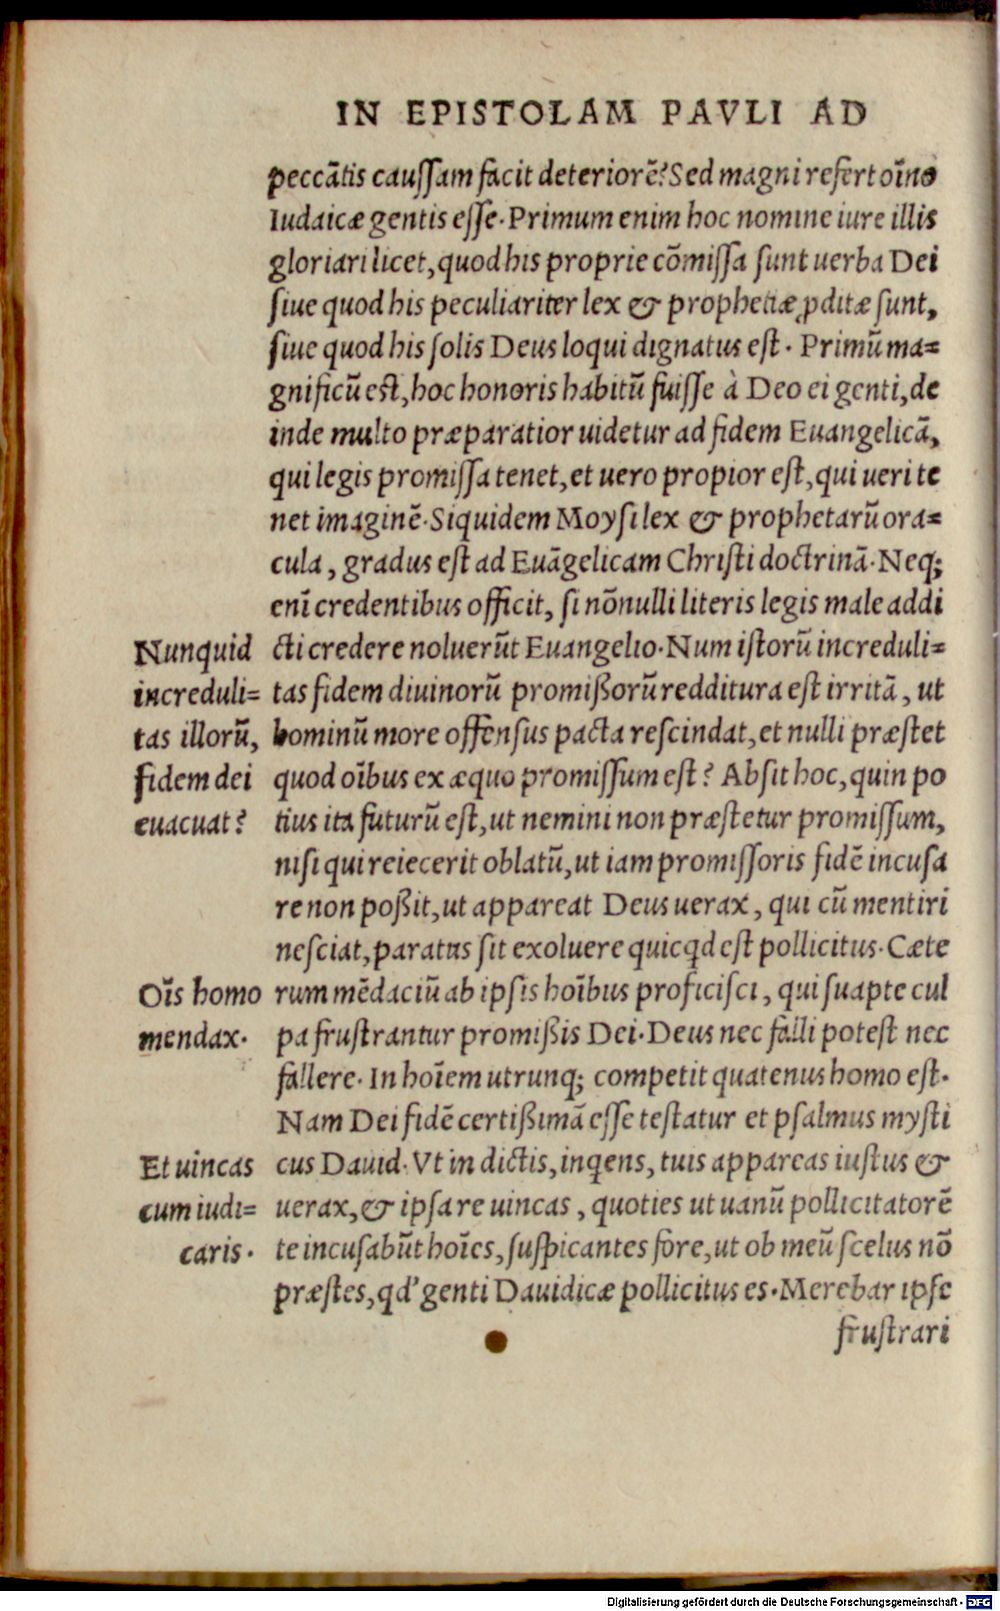 IN EPISTOLAM PAVLI AD
peccātis caussam facit deteriorē? Sed magni refert oīno
Iudaicæ gentis esse. Primum enim hoc nomine iure illis
gloriari licet, quod his proprie cōmissa sunt uerba Dei
siue quod his peculiariter lex & prophetiæ ꝓditæ sunt,
siue quod his solis Deus loqui dignatus est. Primū ma=
gnificū est, hoc honoris habitū fuisse à Deo ei genti, de
inde multo præparatior uidetur ad fidem Euangelicā,
qui legis promissa tenet, et uero propior est, qui ueri te
net imaginē. Siquidem Moysi lex & prophetarū ora=
cula, gradus est ad Euāgelicam Christi doctrinā. Neq;
enī credentibus officit, si nōnulli literis legis male addi
Nunquid
increduli=
tas illorū,
fidem dei
euacuat?
cti credere noluerūt Euangelio. Num istorū increduli=
tas fidem diuinorū promißorū redditura est irritā, ut
hominū more offensus pacta rescindat, et nulli præstet
quod oībus ex æquo promissum est? Absit hoc, quin po
tius ita futurū est, ut nemini non præstetur promissum,
nisi qui reiecerit oblatū, ut iam promissoris fidē incusa
re non poßit, ut appareat Deus uerax, qui cū mentiri
nesciat, paratus sit exoluere quicqd est pollicitus. Cæte
Oīs homo
mendax.
rum mēdaciū ab ipsis hoībus proficisci, qui suapte cul
pa frustrantur promißis Dei. Deus nec falli potest nec
fallere. In hoīem utrunq; competit quatenus homo est.
Nam Dei fidē certißimā esse testatur et psalmus mysti
Et uincas
cum iudi=
caris.
cus Dauid. Vt in dictis, inqens, tuis appareas iustus &
uerax, & ipsa re uincas, quoties ut uanū pollicitatorē
te incusabūt hoīes, suspicantes fore, ut ob meū scelus nō
præstes, qd' genti Dauidicæ pollicitus es. Merebar ipse
frustrari
Digitalisierung gefördert durch die Deutsche Forschungsgemeinschaft - DFG